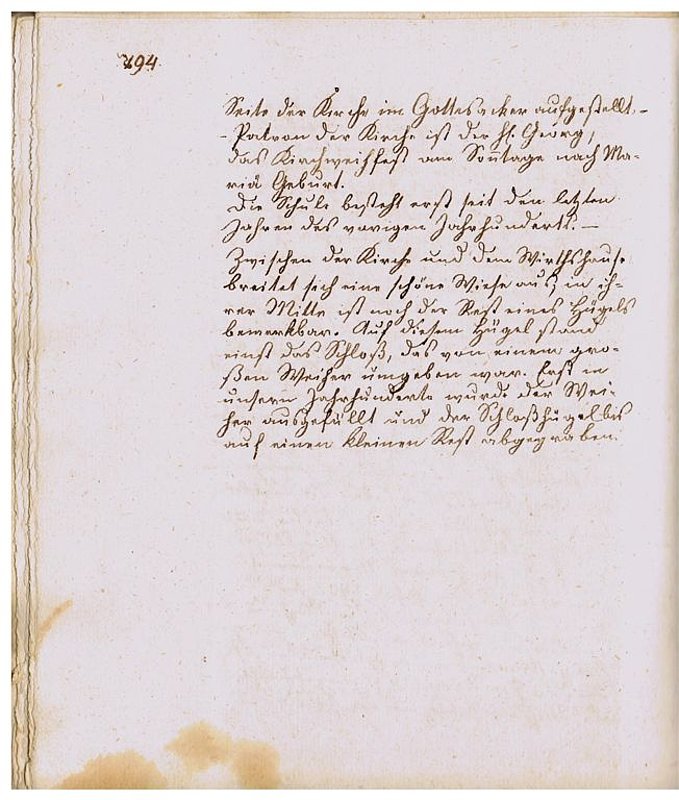 494
Seite der Kirche im Gottesacker aufgestellt. –
– Patron der Kirche ist der hl. Georg,
das Kirchweihfest am Sonntage nach Ma-
riä Geburt.
Die Schule besteht erst seit den letzten
Jahren des vorigen Jahrhunderts. –
Zwischen der Kirche und dem Wirthshause
breitet sich eine schöne Wiese aus, in ih-
rer Mitte ist noch der Rest eines Hügels
bemerkbar. Auf diesem Hügel stand
einst das Schloß, das von einem gro-
ßen Weiher umgeben war. Erst in
unsern Jahrhunderte wurde der Wei-
her ausgefüllt und der Schloßhügel bis
auf einen kleinen Rest abgegraben.